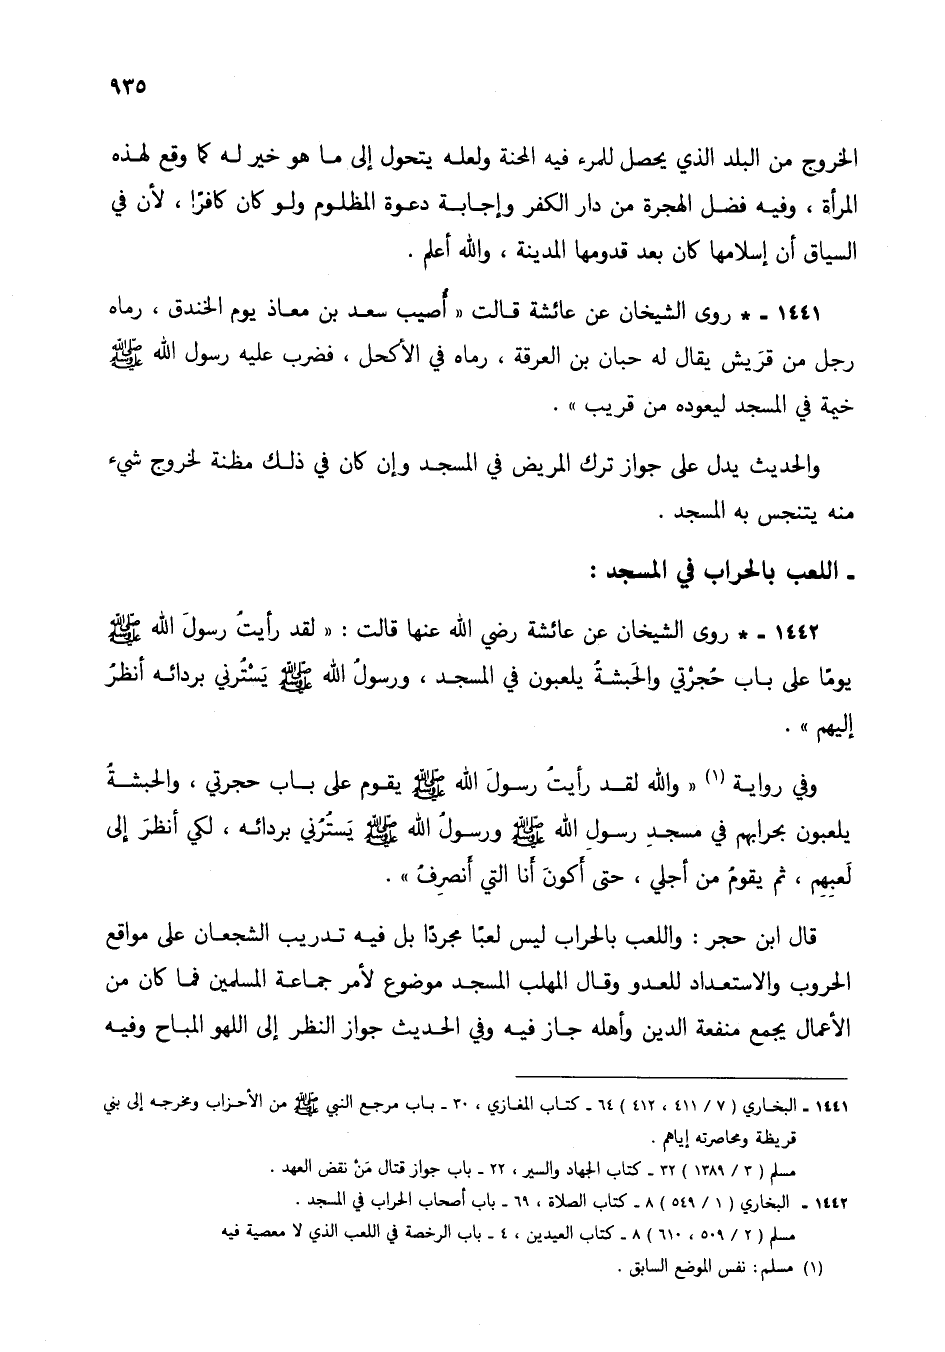 ٩٣٥
الخروج من البلد الذي يحصل للمرء فيه المحنة ولعله يتحول إلى ما هو خير له كما وقع لهذه
المرأة ، وفيه فضل الهجرة من دار الكفر وإجابة دعوة المظلوم ولو كان كافرًا ، لأن في
السياق أن إسلامها كان بعد قدومها المدينة ، والله أعلم .
١٤٤١ - * روى الشيخان عن عائشة قالت « أُصيب سعد بن معاذ يوم الخندق ، رماه
رجل من قرَيش يقال له حبان بن العرقة ، رماه في الأكحل ، فضرب عليه رسول الله ﷺ
خيمة في المسجد ليعوده من قريب » .
والحديث يدل على جواز ترك المريض في المسجد وإن كان في ذلك مظنة لخروج شيء
منه يتنجس به المسجد .
ـ اللعب بالحراب في المسجد :
١٤٤٢ - * روى الشيخان عن عائشة رضي الله عنها قالت : « لقد رأيتُ رسولَ الله ﷺ
يومًا على باب حُجرْتي والحَبشةُ يلعبون في المسجد ، ورسولُ الله ﷺ يَسْتُرني بردائه أنظرُ
إليهم » .
وفي رواية (١) « والله لقد رأيتُ رسولَ الله ﷺ يقوم على باب حجرتي ، والحبشةُ
يلعبون بحرابهم في مسجدِ رسول الله ﷺ ورسولُ الله ﷺ يَستُرُني بردائه ، لكي أنظرَ إلى
لَعبِهِم ، ثم يقومُ من أجلي ، حتى أكونَ أَنا التي أَنصرِفُ » .
قال ابن حجر : واللعب بالحراب ليس لعبًا مجردًا بل فيه تدريب الشجعان على مواقع
الحروب والاستعداد للعدو وقال المهلب المسجد موضوع لأمر جماعة المسلمين فما كان من
الأعمال يجمع منفعة الدين وأهله جاز فيه وفي الحديث جواز النظر إلى اللهو المباح وفيه
١٤٤١ ـ البخاري ( ٧ / ٤١١ ، ٤١٢ ) ٦٤ ـ كتاب المغازي ، ٣٠ ـ باب مرجع النبي ﷺ من الأحزاب ومخرجه إلى بني
قريظة ومحاصرته إياهم .
مسلم ( ٣ / ١٣٨٩ ) ٣٢ ـ كتاب الجهاد والسير ، ٢٢ ـ باب جواز قتال مَنْ نقض العهد .
١٤٤٢ ـ البخاري ( ١ / ٥٤٩ ) ٨ ـ كتاب الصلاة ، ٦٩ ـ باب أصحاب الحراب في المسجد .
مسلم ( ٢ / ٥٠٩ ، ٦١٠ ) ٨ ـ كتاب العيدين ، ٤ ـ باب الرخصة في اللعب الذي لا معصية فيه
(١) مسلم : نفس الموضع السابق .